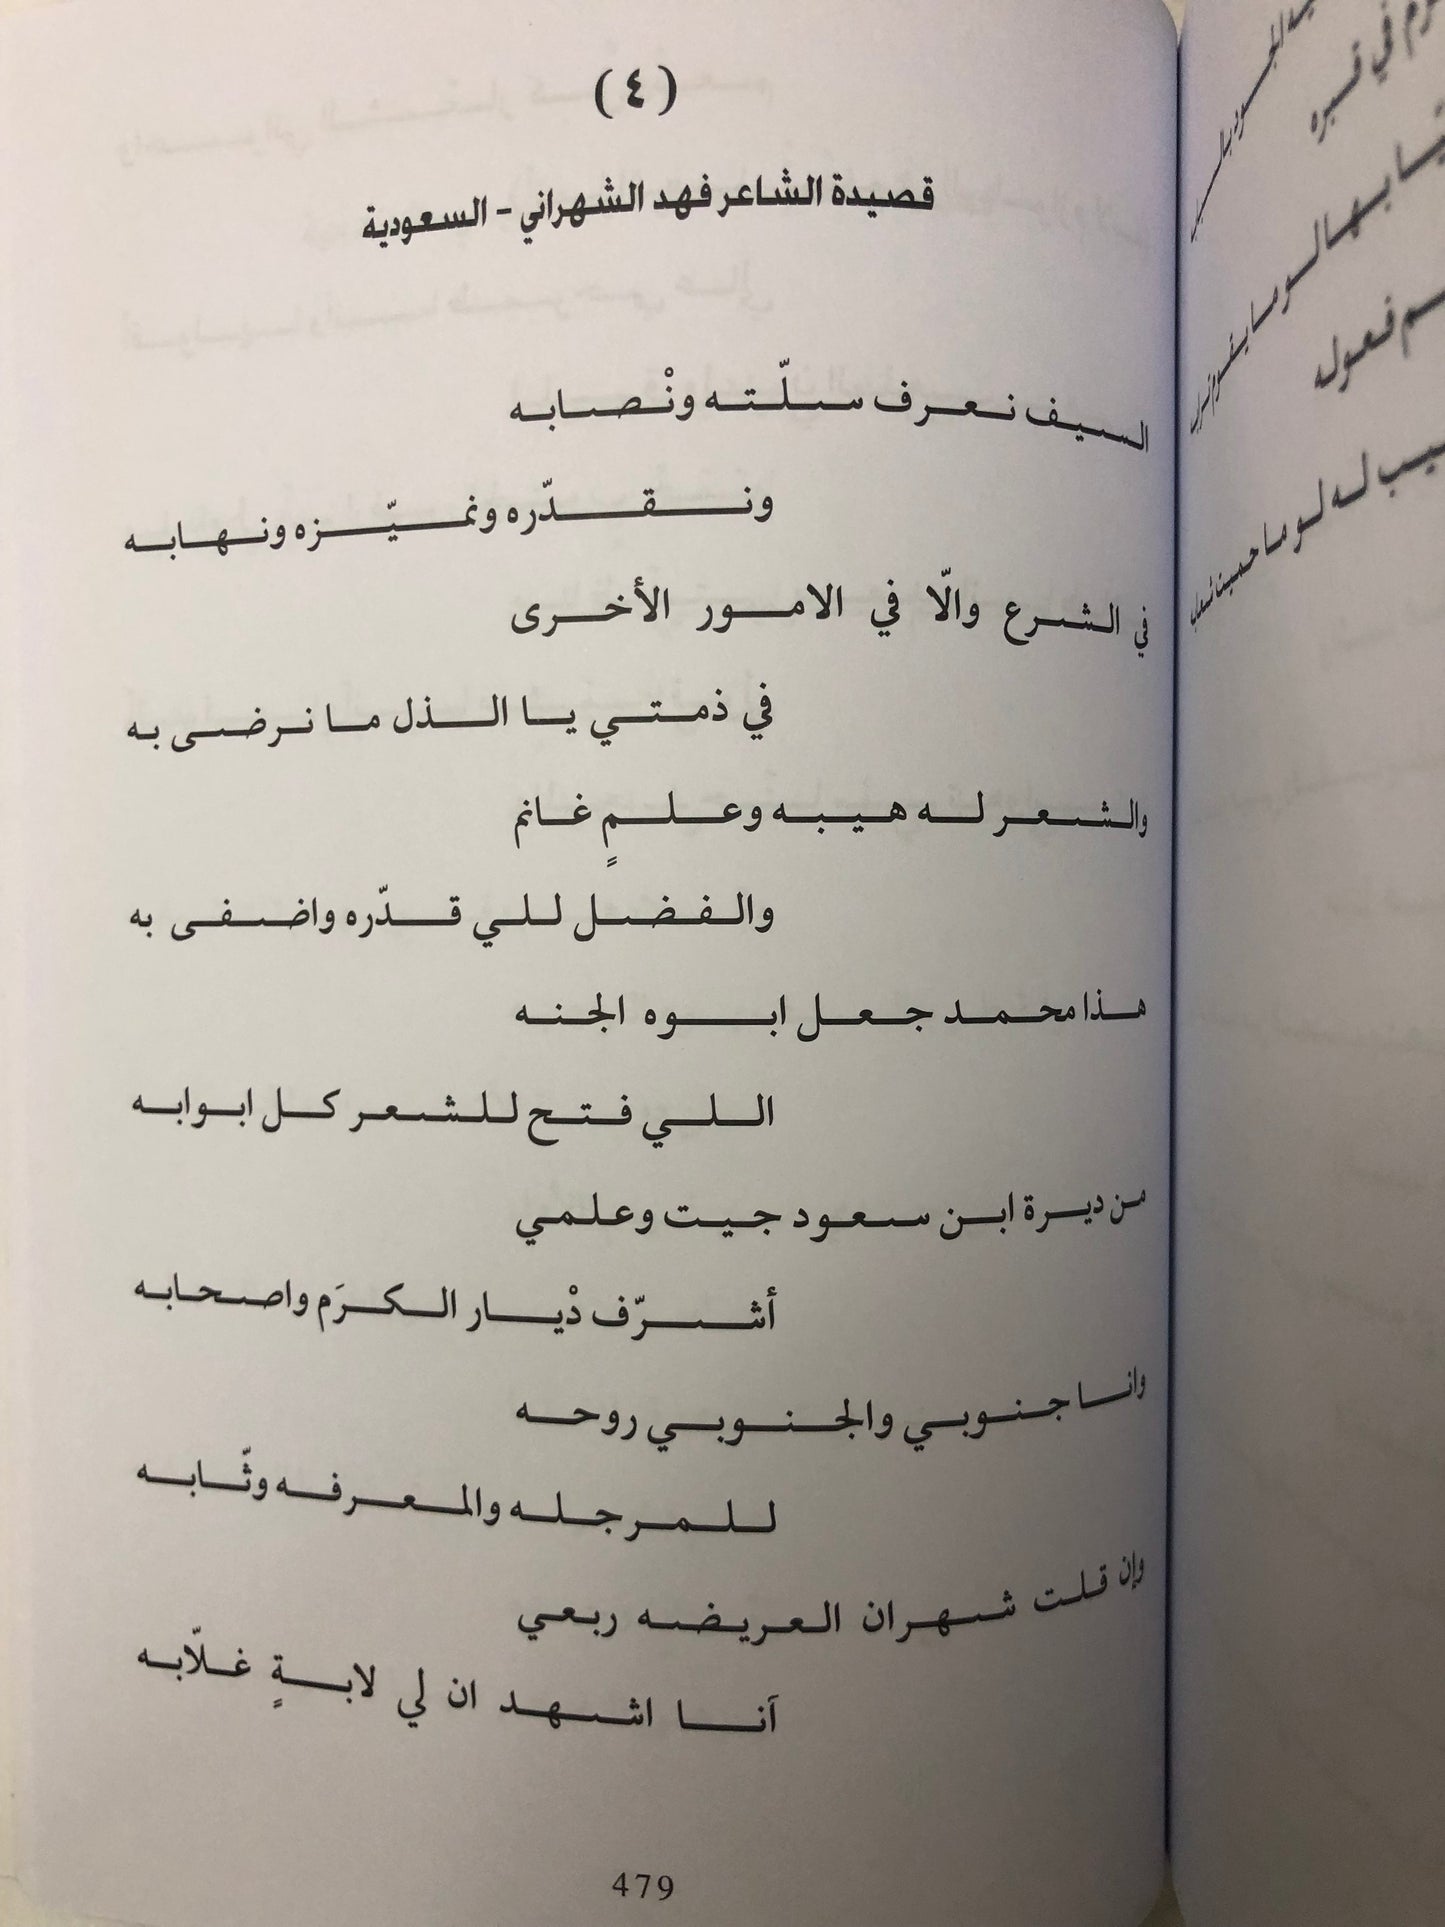 (٤)
قصيدة الشاعر فهد الشهراني - السعودية
السيف نعرف سلّته ونْصابه
ونقدّره ونميّزه ونهابه
في الشرع والّا في الامور الأخرى
في ذمتي يا الذل ما نرضى به
والشعر له هيبه وعلمٍ غانم
والفضل للي قدّره واضفى به
هذا محمد جعل ابوه الجنه
اللي فتح للشعر كل ابوابه
من ديرة ابن سعود جيت وعلمي
أشرّف دْيار الكرَم واصحابه
وانا جنوبي والجنوبي روحه
للمرجله والمعرفه وثّابه
وإن قلت شهران العريضه ربعي
آنا اشهد ان لي لابةٍ غلّابه
479
في قبره
لو ما
فعوله
له لو ما